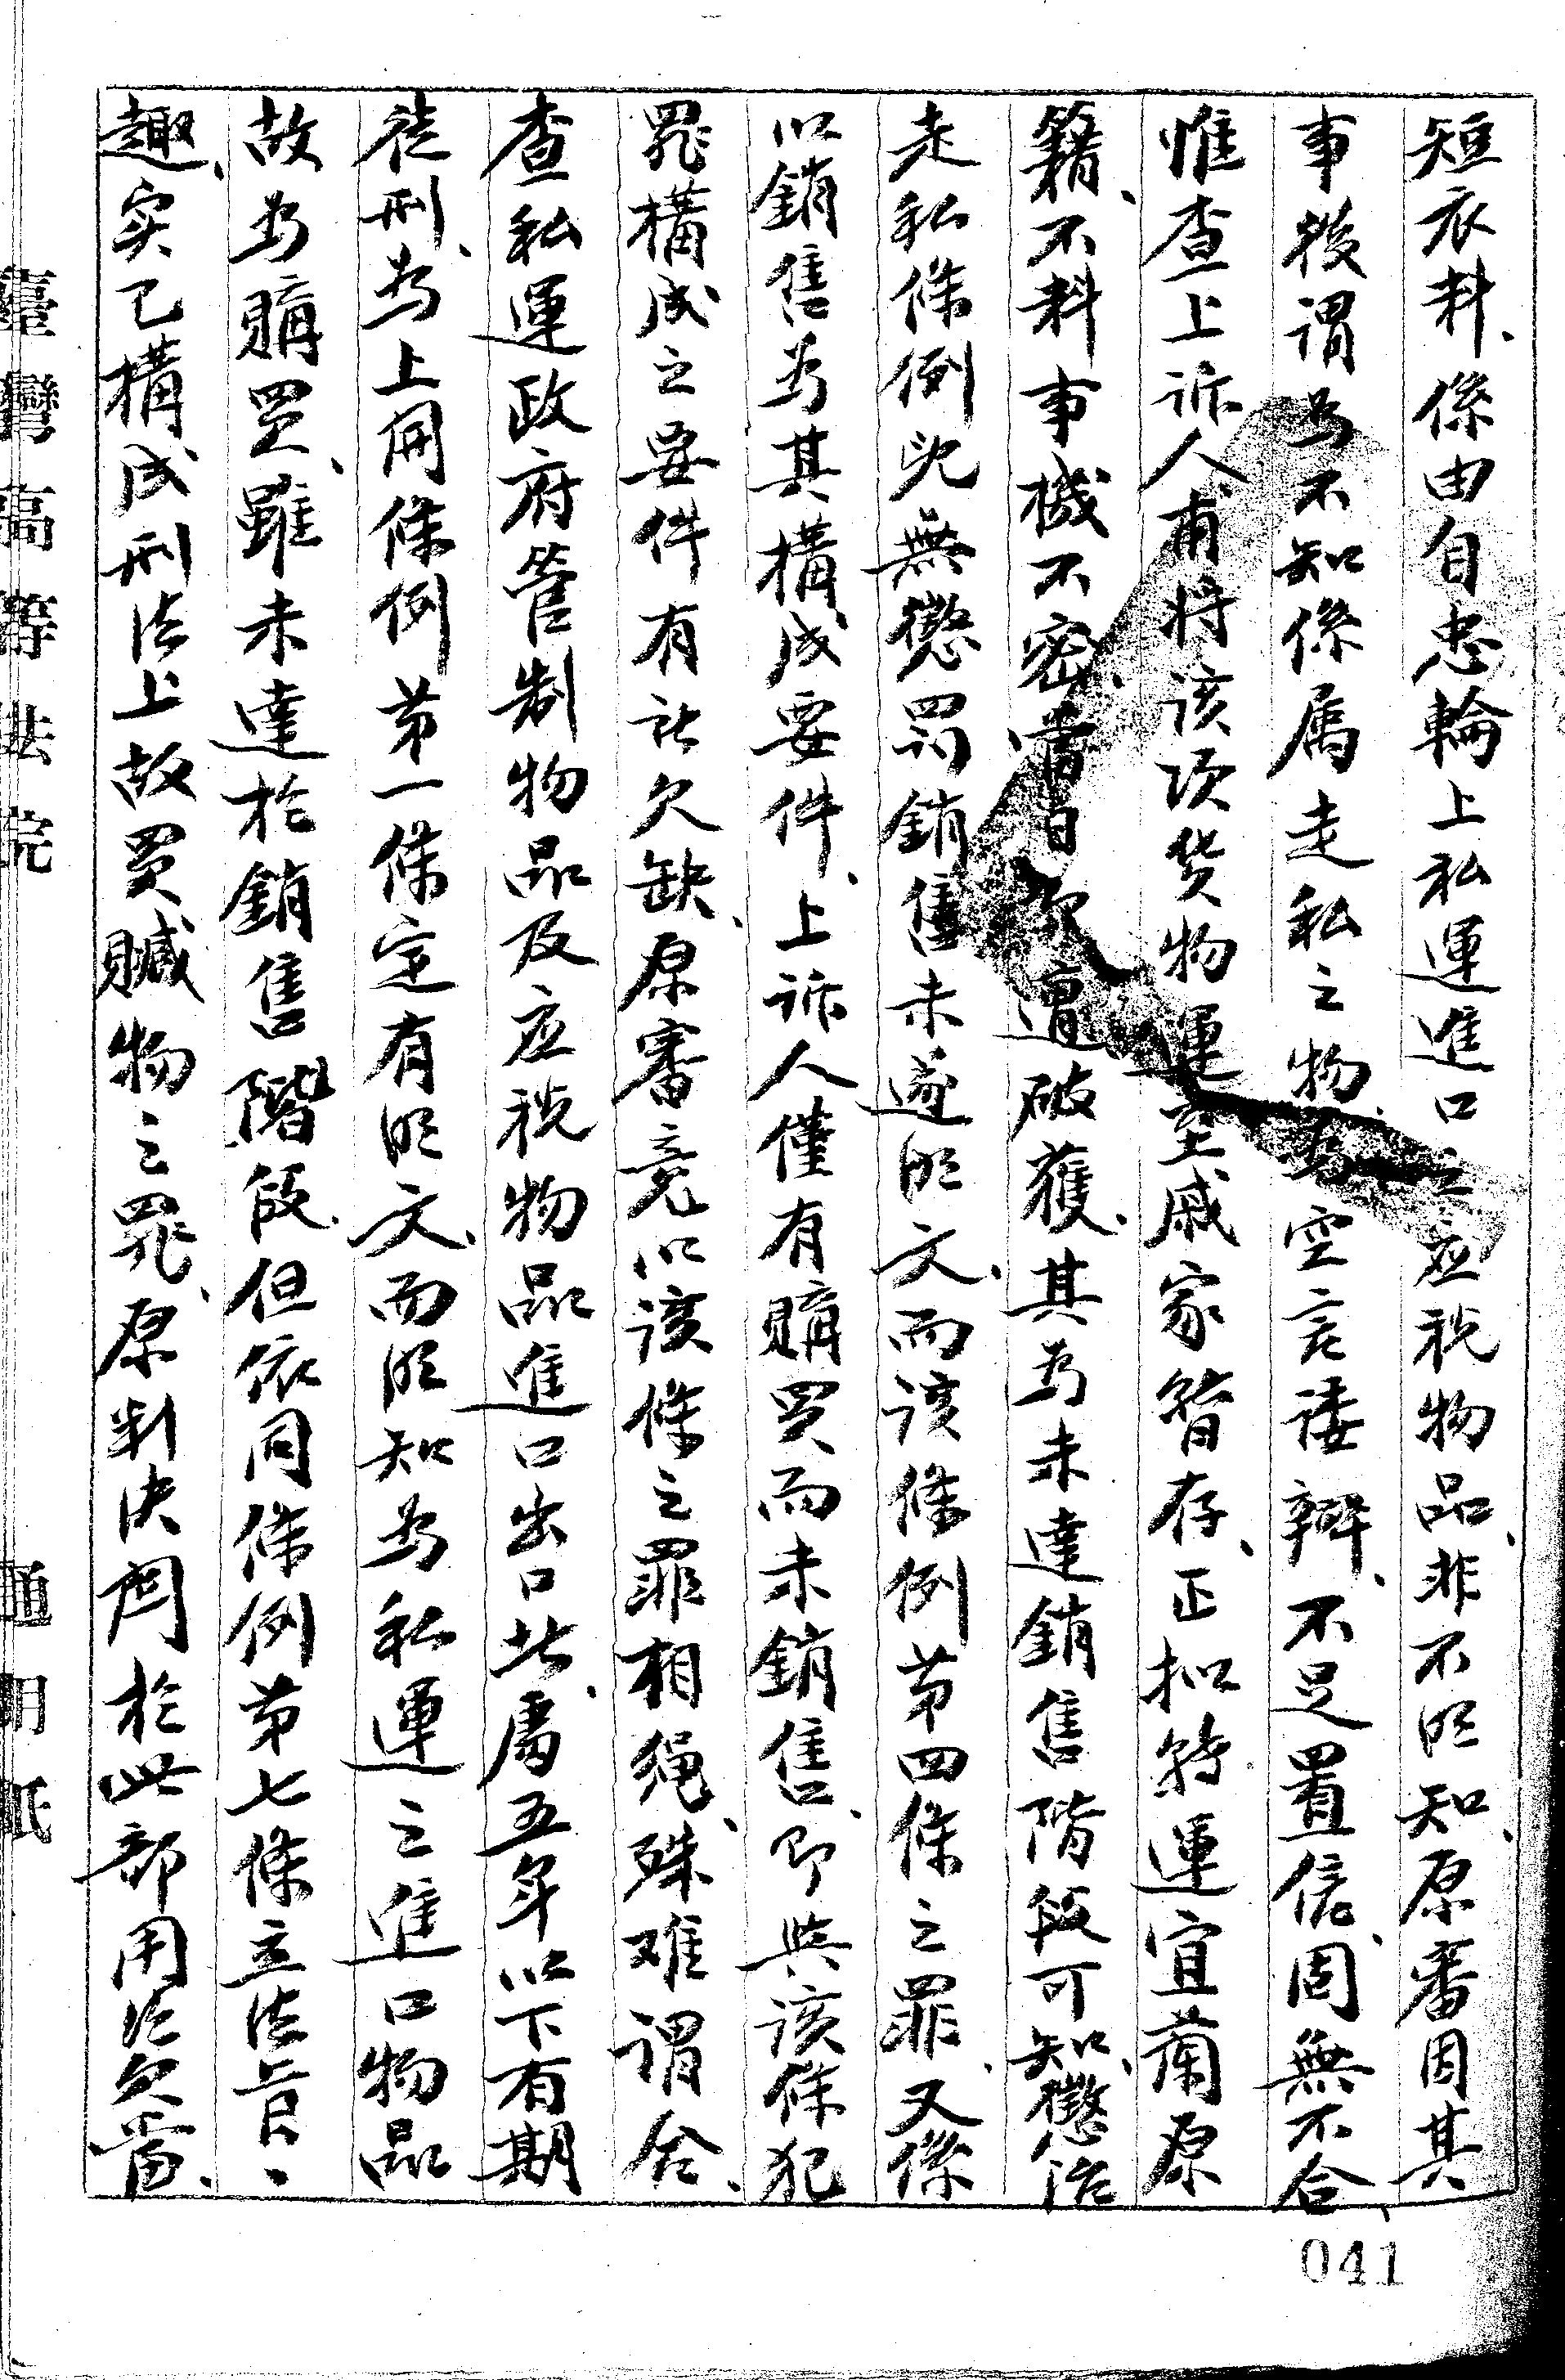 短衣料、係由自忠輪上私運進口之应税物品、非不明知、原審因其
事後谓为不知係属走私之物、为空言诿辩、不足置信、固無不合、
惟查上诉人甫将该项货物運至戚家暂存、正拟转運宜蘭原
籍、不料事機不密、當即遭破獲、其为未達銷售階段可知、懲治
走私條例既無懲罰銷售未遂明文、而该條例第四條之罪、又係
以銷售为其構成要件、上诉人僅有購買而未銷售、即與该條犯
罪構成之要件有所欠缺、原審竟以该條之罪相绳、殊难谓合、
查私運政府管制物品及应税物品進口出口者、處五年以下有期
徒刑、为上開條例第一條定有明文、而明知为私運之進口物品
故为購買、雖未達於銷售階段、但依同條例第七條立法旨、
趣、实已構成刑法上故買贓物之罪、原判决関於此部用法欠當、
臺灣高等法院
通用紙
041